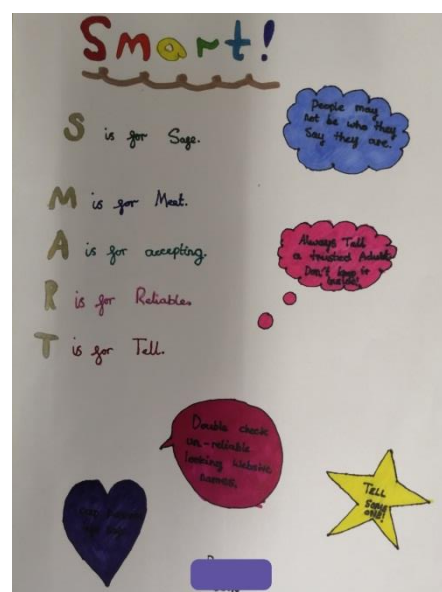 Smart!
S is for Safe.
M is for Meet.
A is for accepting.
R is for Reliable.
T is for Tell.
People may
not be who they
Say they are.
Always Tell
a trusted Adult
Don't keep it
inside!
Double check
un-reliable
looking Website
names.
TELL
Some
one!